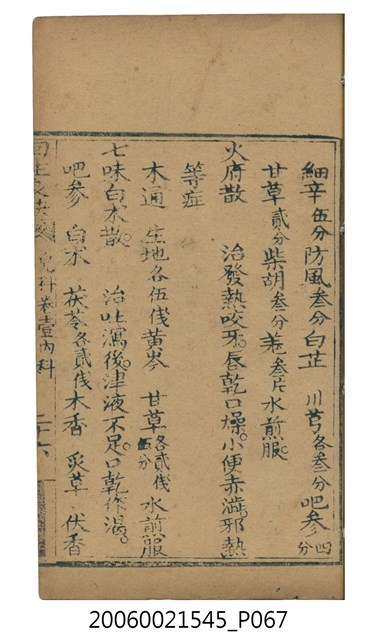 細辛伍分防風叁分白芷 川芎各叁分吧參四分
甘草貳分柴胡叁分姜叁片水煎服。
火府散 治發熱咬牙。唇乾口燥。小便赤澁。邪熱
等症
木通 生地各伍伐黃岑 甘草各貳伐伍分 水煎服
七味白术散。 治吐瀉後。津液不足。口乾作渴。
吧參 白术 茯苓各貳伐木香 炙草 伏香
兒科卷壹內科
20060021545_P067